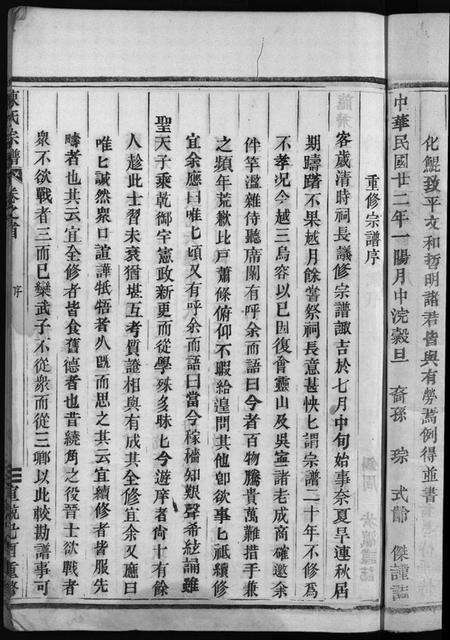 化鯤致平文和哲明諸君皆與有勞焉例得並書
中華民國廿二年一陽月中浣穀旦 裔孫 琮 式 傑謹誌
重修宗譜序
客歲清時祠長議修宗譜諏吉於七月中旬始事奈夏旱連秋居
期躊躇不果越月餘嘗祭祠長意甚怏匕謂宗譜二十年不修為
不孝况今越三烏容以已因復會靈山及吳寧諸老成商確邀余
伴竿濫雜待聽席閒有呼余而語曰今者百物騰貴萬難措手兼
之頻年荒歉比戶蕭條俯仰不暇給遑問其他卽欲事匕祗續修
宜余應曰唯匕頃又有呼余而語曰當今稼穡知艱聲希絃誦雖
聖天子乘乾御宇憲政新更而從學殊多昧匕今遊庠者尙十有餘
人趁此士習未衰猶堪互考質證相與有成其全修宜余又應曰
唯匕誠然衆口諠譁牴牾者久旣而思之其云宜續修者皆服先
疇者也其云宜全修者者食舊德者也昔繞角之役晉士欲戰者
衆不欲戰者三而已欒武子不從衆而從三卿以此較勘譜事可
陳氏宗譜 卷之首
序
重修